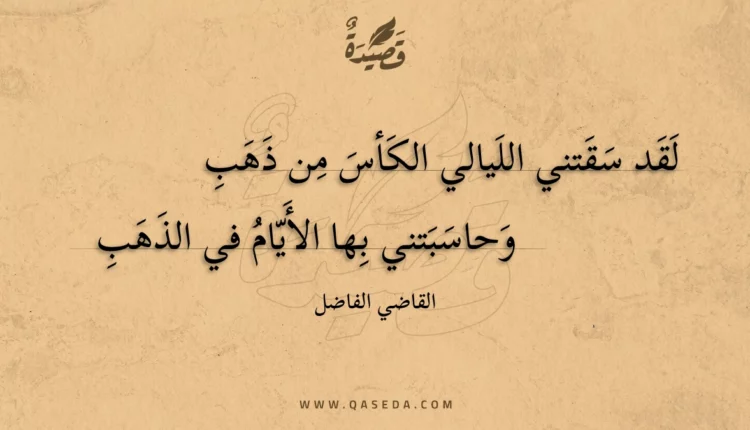 قَصِيدَةٌ
لَقَد سَقَتني اللَيالي الكَأسَ مِن ذَهَبِ
وَحاسَبَتني بِها الأَيّامُ في الذَهَبِ
القاضي الفاضل
WWW.QASEDA.COM